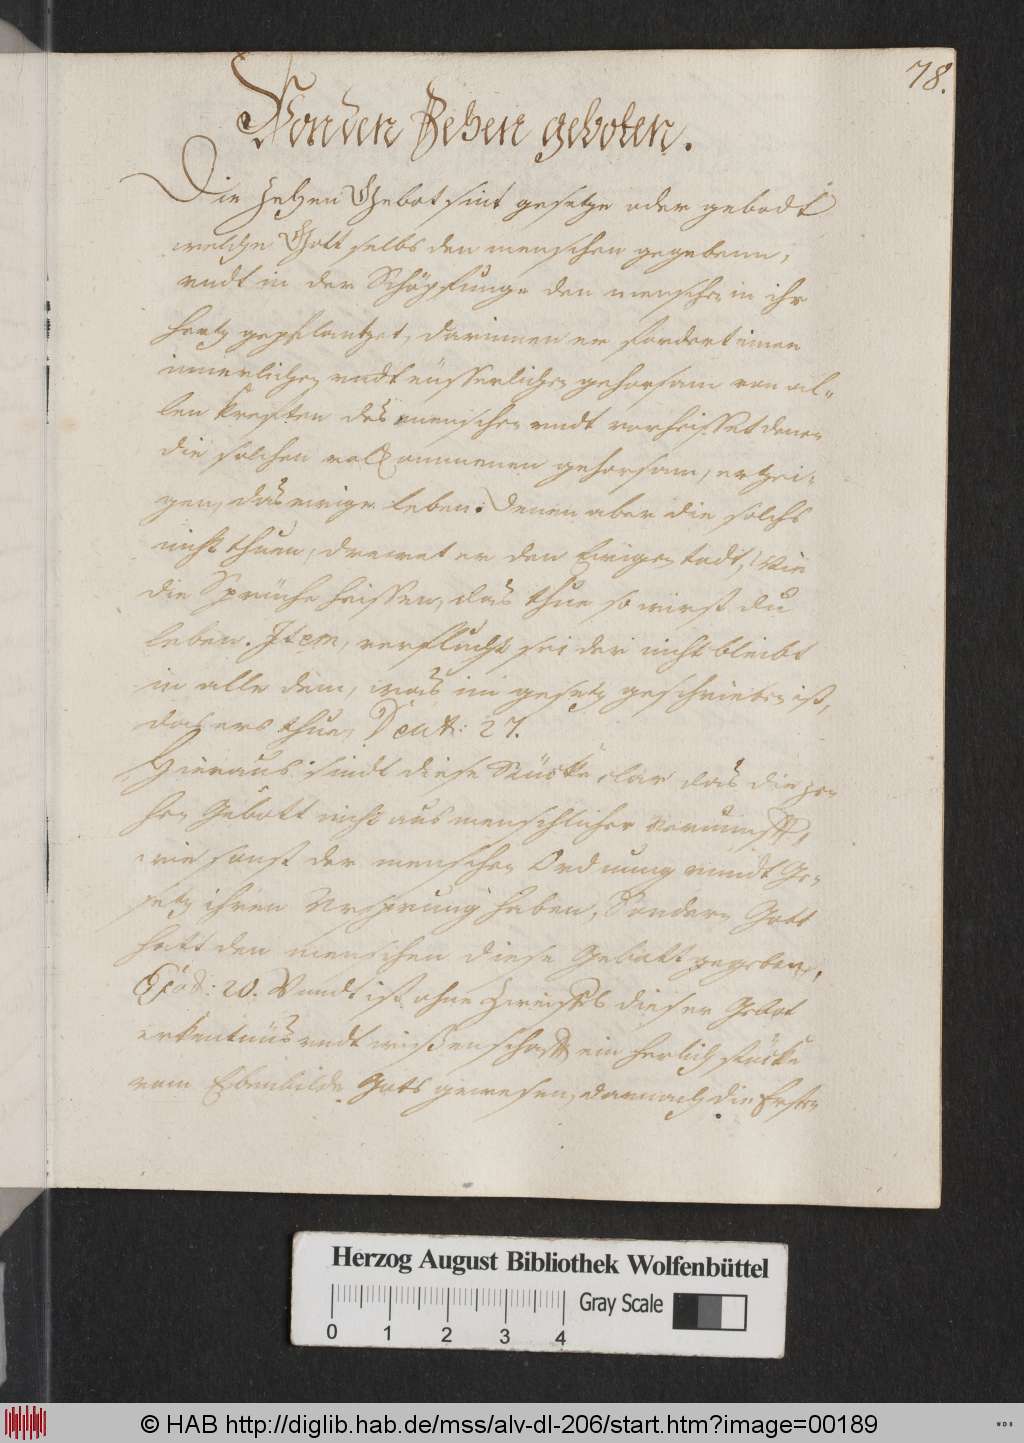 78.
Von den Zehen geboten.
Die Zehen Gebot sint gesetze oder gebodt
welche Gott selbs den menschen gegebenn,
undt in der Schöpfunge den menschen in ihr
hertz gepflantzet, darinnen er fordert einen
innerlichen undt eusserlichen gehorsam von al-
len kreften des menschen undt vorheisset denen
die solchen volkommenen gehorsam, ertzei-
gen, das ewige leben. Denen aber die solchs
nicht thuen, drewet er den Ewigen todt, Wie
die Sprüche heissen, das thue so wirst du
leben. Item, verflucht sei der nicht bleibt
in alle dem, was im gesetz geschrieben ist,
das ers thue, Deut: 27.
Hieraus sindt diese Stücke clar das die ze-
hen Gebott nicht aus menschlicher vernunfft,
wie sonst der menschen Ordnung unndt Ge-
setz ihren Ursprung haben, Sondern Gott
hatt den menschen diese Gebott gegeben,
Exod: 20. Unndt ist ohne Zweiffel dieser Gebot
erkentnüs undt wissenschafft ein herlich stücke
vom Ebenbilde Gots gewesen, darnach die Ersten
Herzog August Bibliothek Wolfenbüttel
Gray Scale
0 1 2 3 4
© HAB http://diglib.hab.de/mss/alv-dl-206/start.htm?image=00189